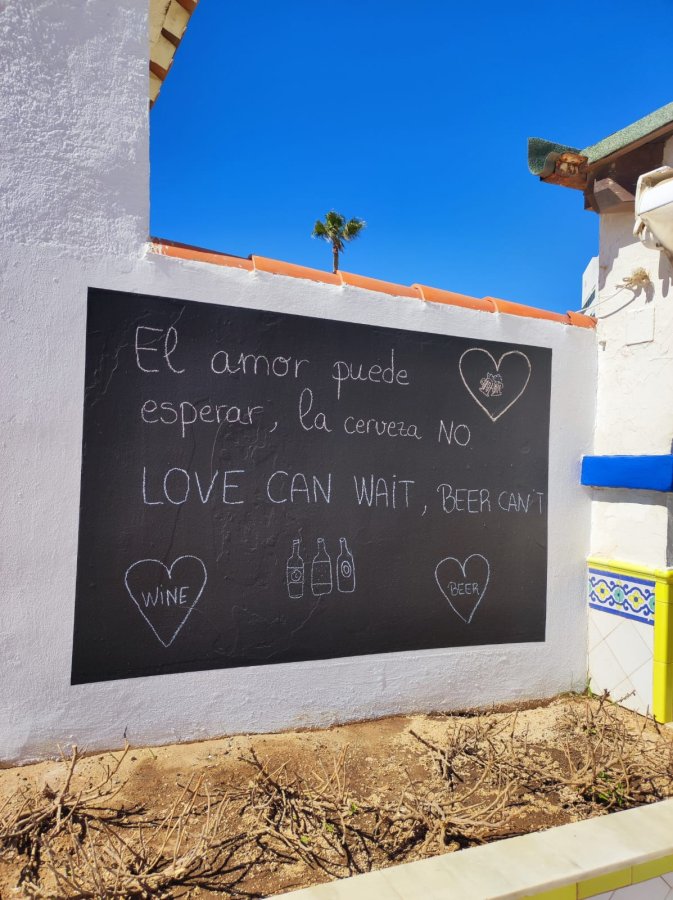 El amor puede
esperar, la cerveza NO.
LOVE CAN WAiT, BEER CAN'T
WiNE
BEER